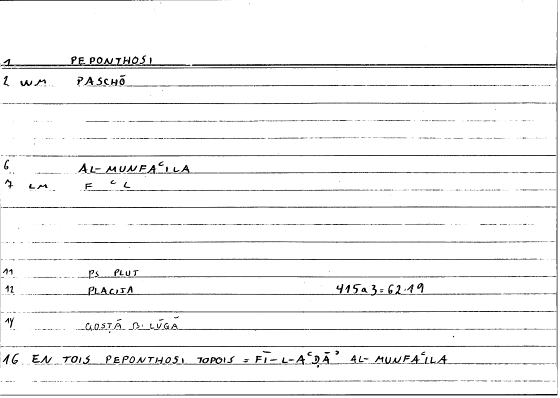 1 PEPONTHOSI
2 WM PASCHŌ
6 AL-MUNFAᶜILA
7 LM F ᶜ L
11 PS PLUT
12 PLACITA 415a3=62.19
14 QOSṬĀ B. LŪQĀ
16 EN TOIS PEPONTHOSI TOPOIS = FĪ-L-AᶜḌĀʾ AL-MUNFAᶜILA